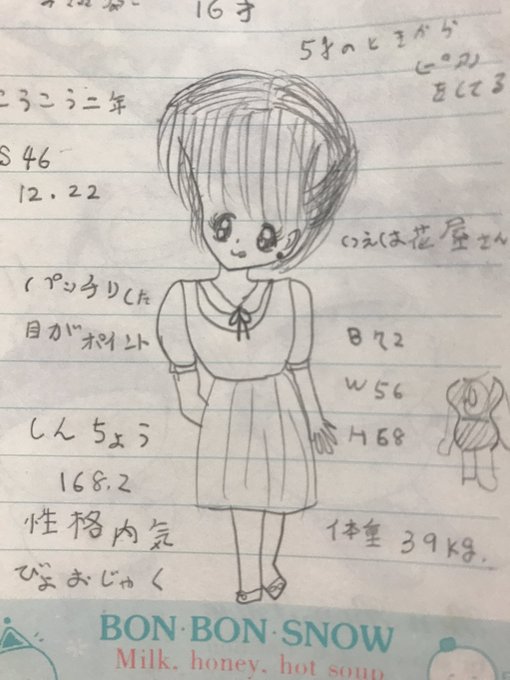 16才
5才のときから
ピアノ
をしてる
こうこう二年
S46
12.22
いえは花屋さん
パッチリした
目がポイント
B 72
W 56
H 68
しんちょう
168.2
性格内気
体重 39kg.
びょおじゃく
BON·BON·SNOW
Milk, honey, hot soup